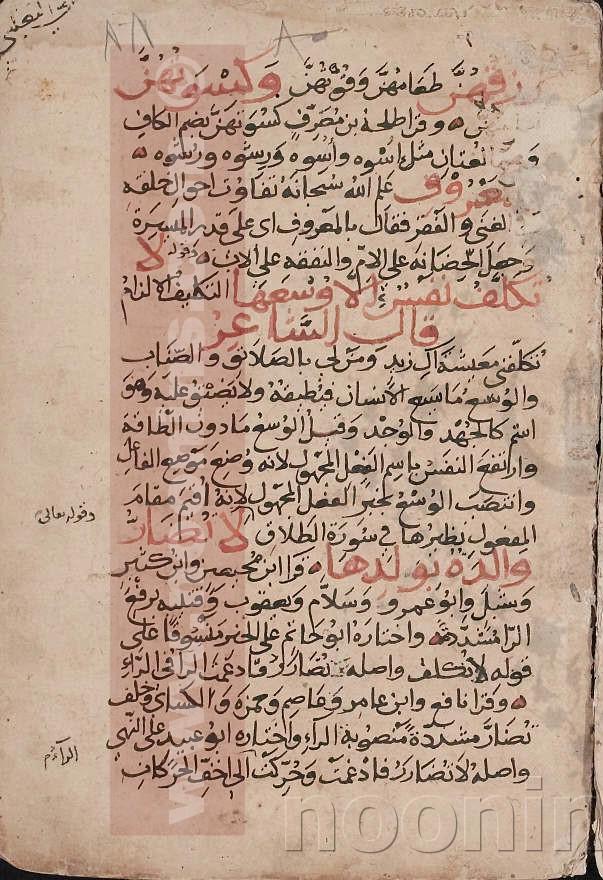 رزقهن طعامهن وقوتهن وكسوتهن
وقرا طلحة بن مصرف كسوتهن بضم الكاف
لغتان مثل اسوه وأسوه ورشوه ورشوه
بالمعروف علم الله سبحانه تفاوت احوال خلقه
الغنى والفقر فقال بالمعروف اى على قدر الميسرة
وجعل الحضانه على الام والنفقه على الاب وقوله لا
تكلف نفس الا وسعها التكليف الالزام
قال الشاعر
تكلفني معيشة آل زيد ومن لي بالصلائق والصناب
والوسع ما يسع الانسان فيطيقه ولا يضيق عليه وهو
اسم كالجهد والوجد وقيل الوسع ما دون الطاقة
وارتفع النفس باسم الفعل المجهول لانه وضع موضع الفاعل
وانتصب الوسع بخبر الفعل المجهول لانه اقيم مقام
المفعول نظيرها في سورة الطلاق لا تضار
وقوله تعالى
والدة بولدها قرا ابن محيصن وابن كثير
وشبل وابو عمرو وسلام ويعقوب وقتيبه برفع
الرا مشدده واختاره ابو حاتم على الخبر منسوقا على
قوله لا تكلف واصله تضارر فادغمت الرا فى الراء
وقرا نافع وابن عامر وعاصم وحمزة والكسائ وخلف
تضار مشددة منصوبة الراء واختاره ابو عبيد على النهي
واصله لا تضارر فادغمت وحركت الى اخف الحركات
noonin